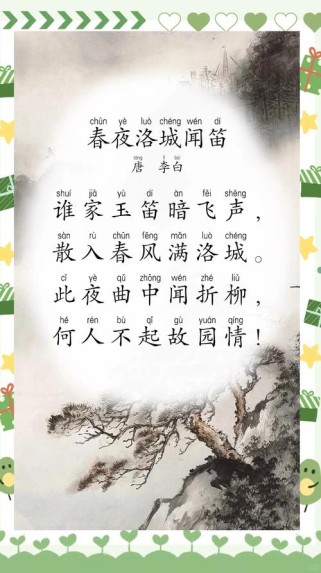 chūn yè luò chéng wén dí
春夜洛城闻笛
táng lǐ bái
唐 李白
shuí jiā yù dí àn fēi shēng
谁家玉笛暗飞声，
sàn rù chūn fēng mǎn luò chéng
散入春风满洛城。
cǐ yè qǔ zhōng wén zhé liǔ
此夜曲中闻折柳，
hé rén bù qǐ gù yuán qíng
何人不起故园情！